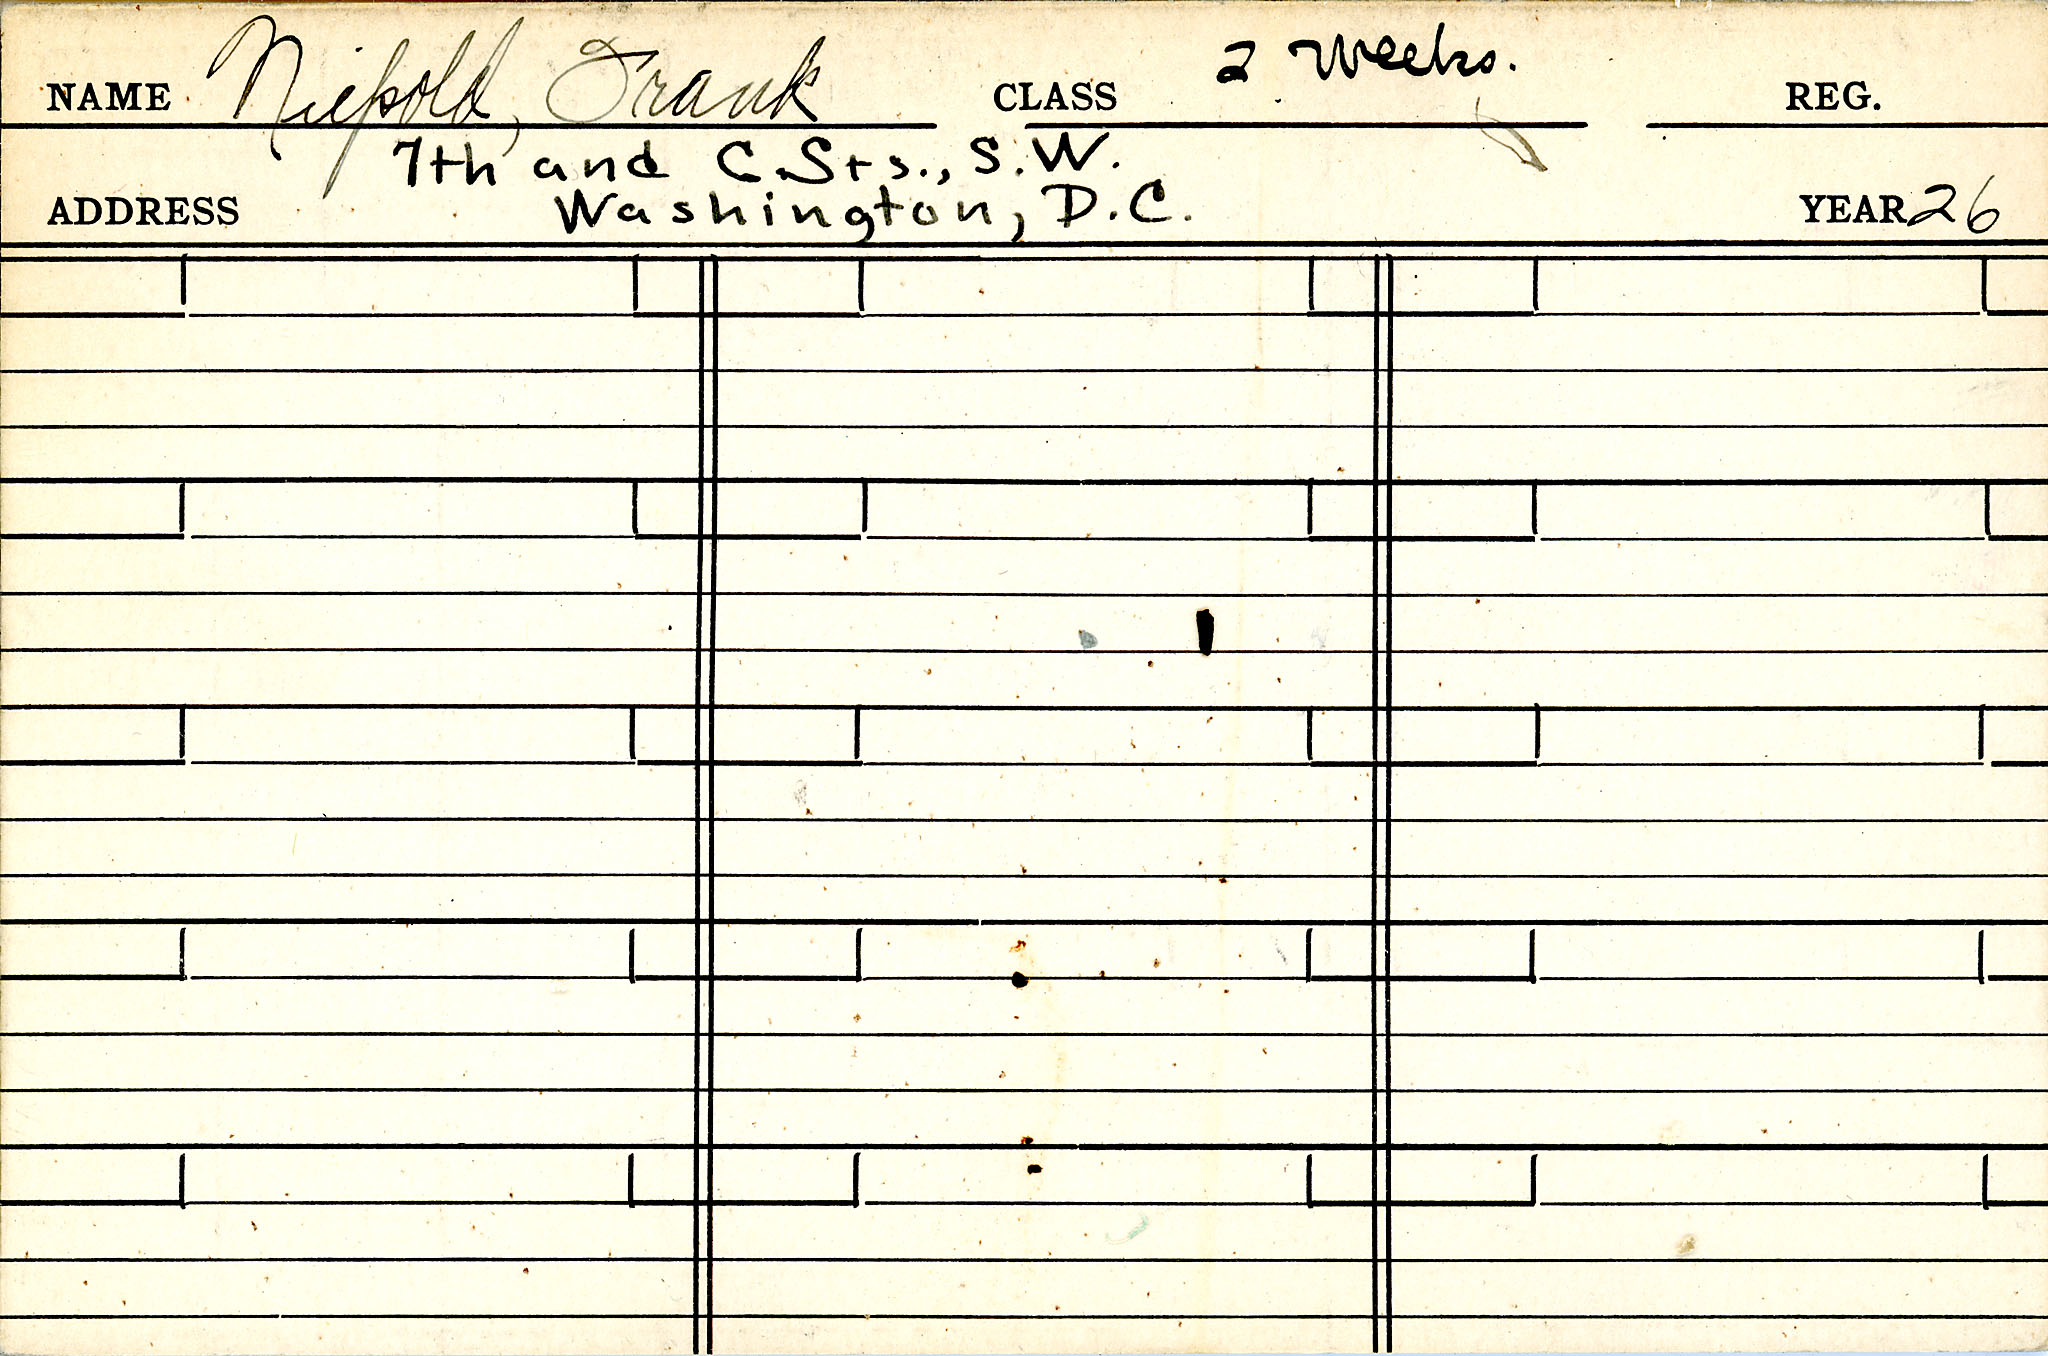 NAME Niepold, Frank CLASS 2 Weeks. REG.
7th and C. Sts., S.W.
ADDRESS Washington, D.C. YEAR 26